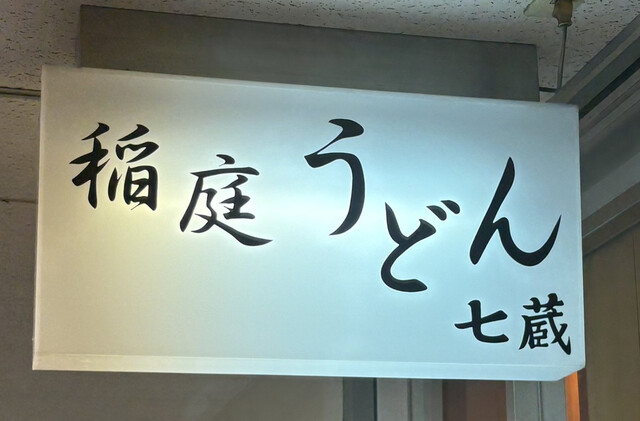 稲庭うどん
七蔵